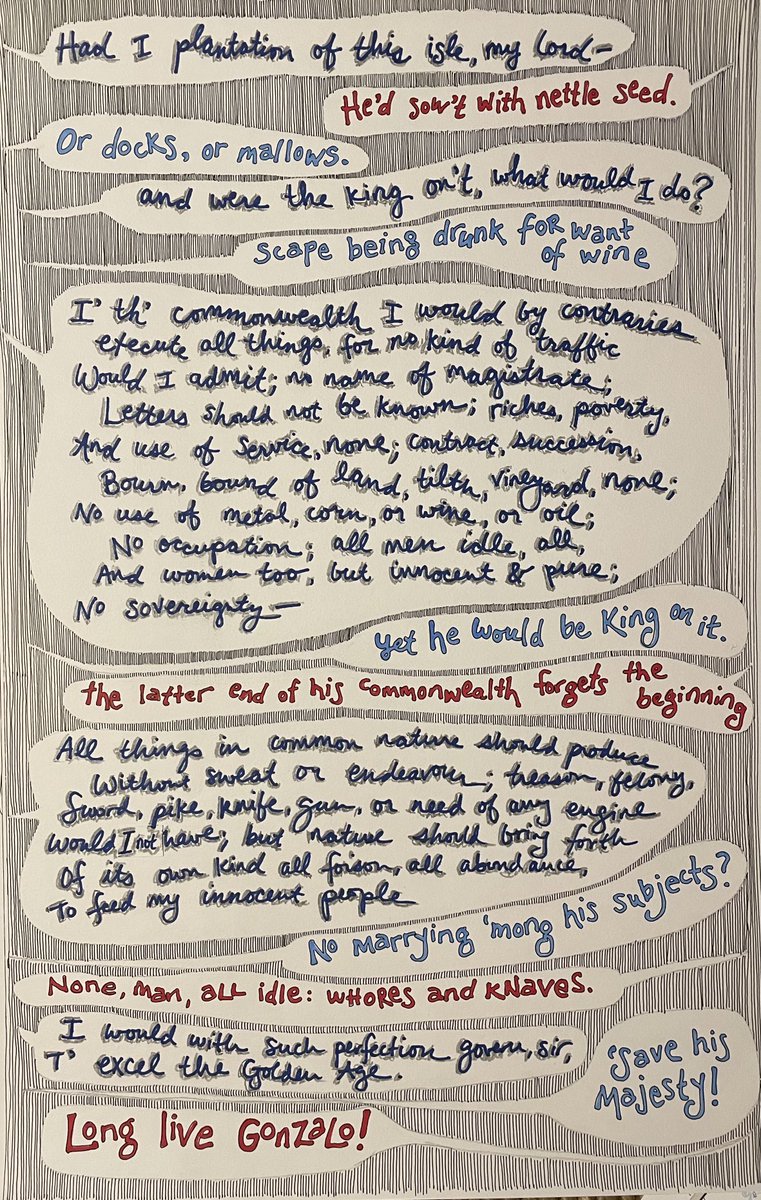 Had I plantation of this isle, my lord—
He'd sow't with nettle seed.
Or docks, or mallows.
and were the king on't, what would I do?
scape being drunk for want
of wine
I' th' commonwealth I would by contraries
execute all things, for no kind of traffic
Would I admit; no name of magistrate;
Letters should not be known; riches, poverty,
And use of service, none; contract, succession,
Bourn, bound of land, tilth, vineyard, none;
No use of metal, corn, or wine, or oil;
No occupation; all men idle, all,
And women too, but innocent & pure;
No sovereignty—
yet he would be King on it.
the latter end of his commonwealth forgets the beginning
All things in common nature should produce
Without sweat or endeavour; treason, felony,
Sword, pike, knife, gun, or need of any engine
Would I not have; but nature should bring forth
Of its own kind all foison, all abundance,
To feed my innocent people
No marrying 'mong his subjects?
None, man, all idle: whores and knaves.
I would with such perfection govern, sir,
T' excel the Golden Age.
'Save his
Majesty!
Long live Gonzalo!